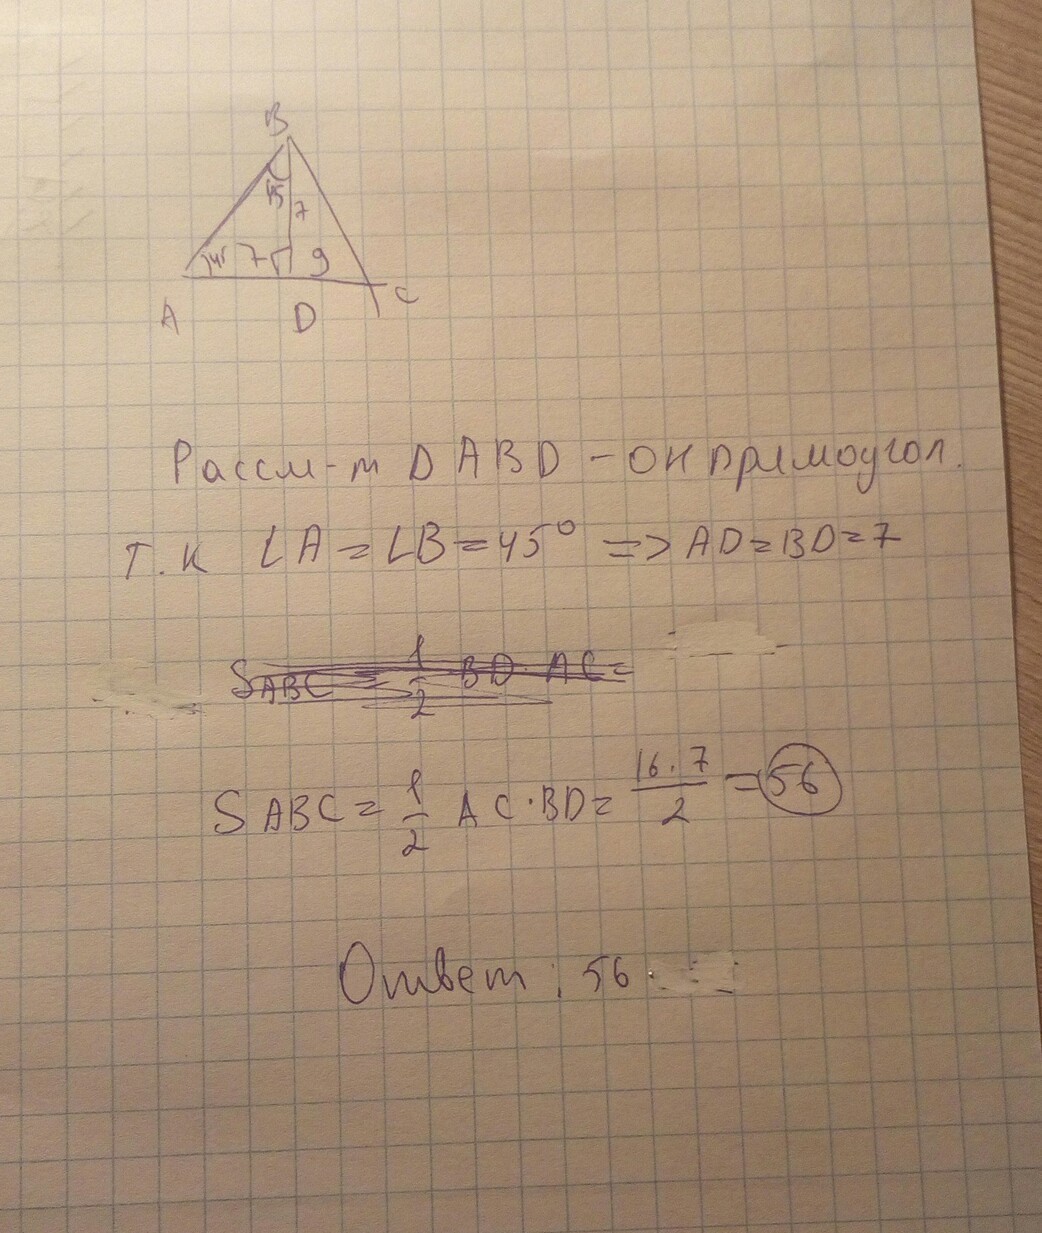 B
45
7
45 7 9
A D C
Рассм-т D ABD - он прямоугол.
Т.К ∠A = ∠B = 45° => AD = BD = 7
SABC = 1/2 BD · AC =
S ABC = 1/2 AC · BD = 16 · 7/2 = 56
Ответ : 56